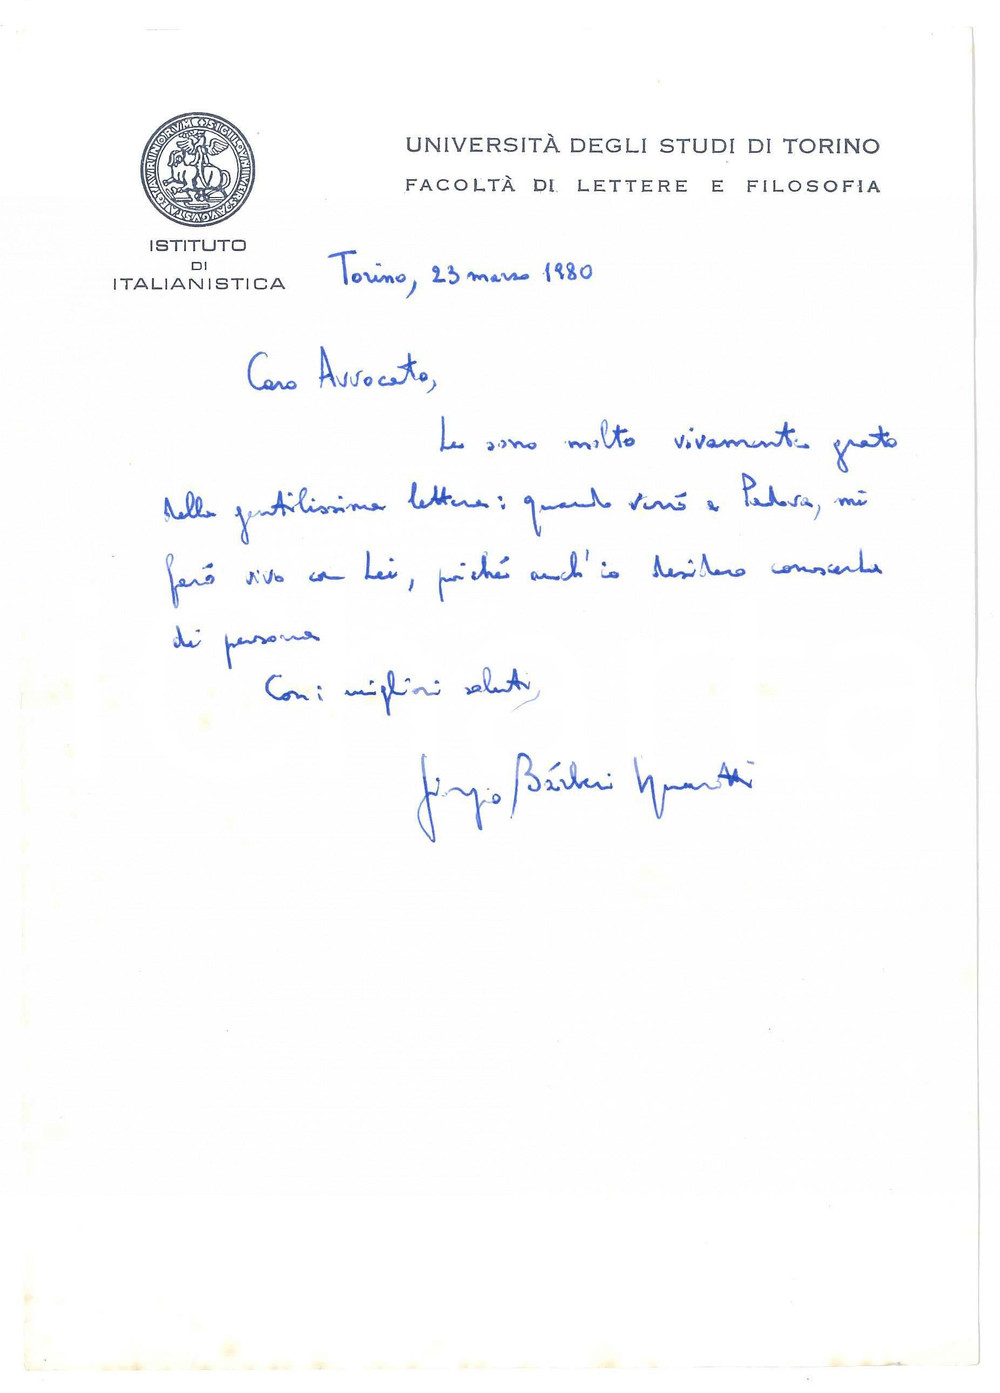 UNIVERSITÀ DEGLI STUDI DI TORINO
FACOLTÀ DI LETTERE E FILOSOFIA
ISTITUTO
DI
ITALIANISTICA
Torino, 23 marzo 1980
Caro Avvocato,
Le sono molto vivamente grato
della gentilissima lettera: quando verrò a Padova, mi
farò vivo con Lei, poiché anch'io desidero conoscerla
di persona
Con i migliori saluti,
Giorgio Bárberi Squarotti